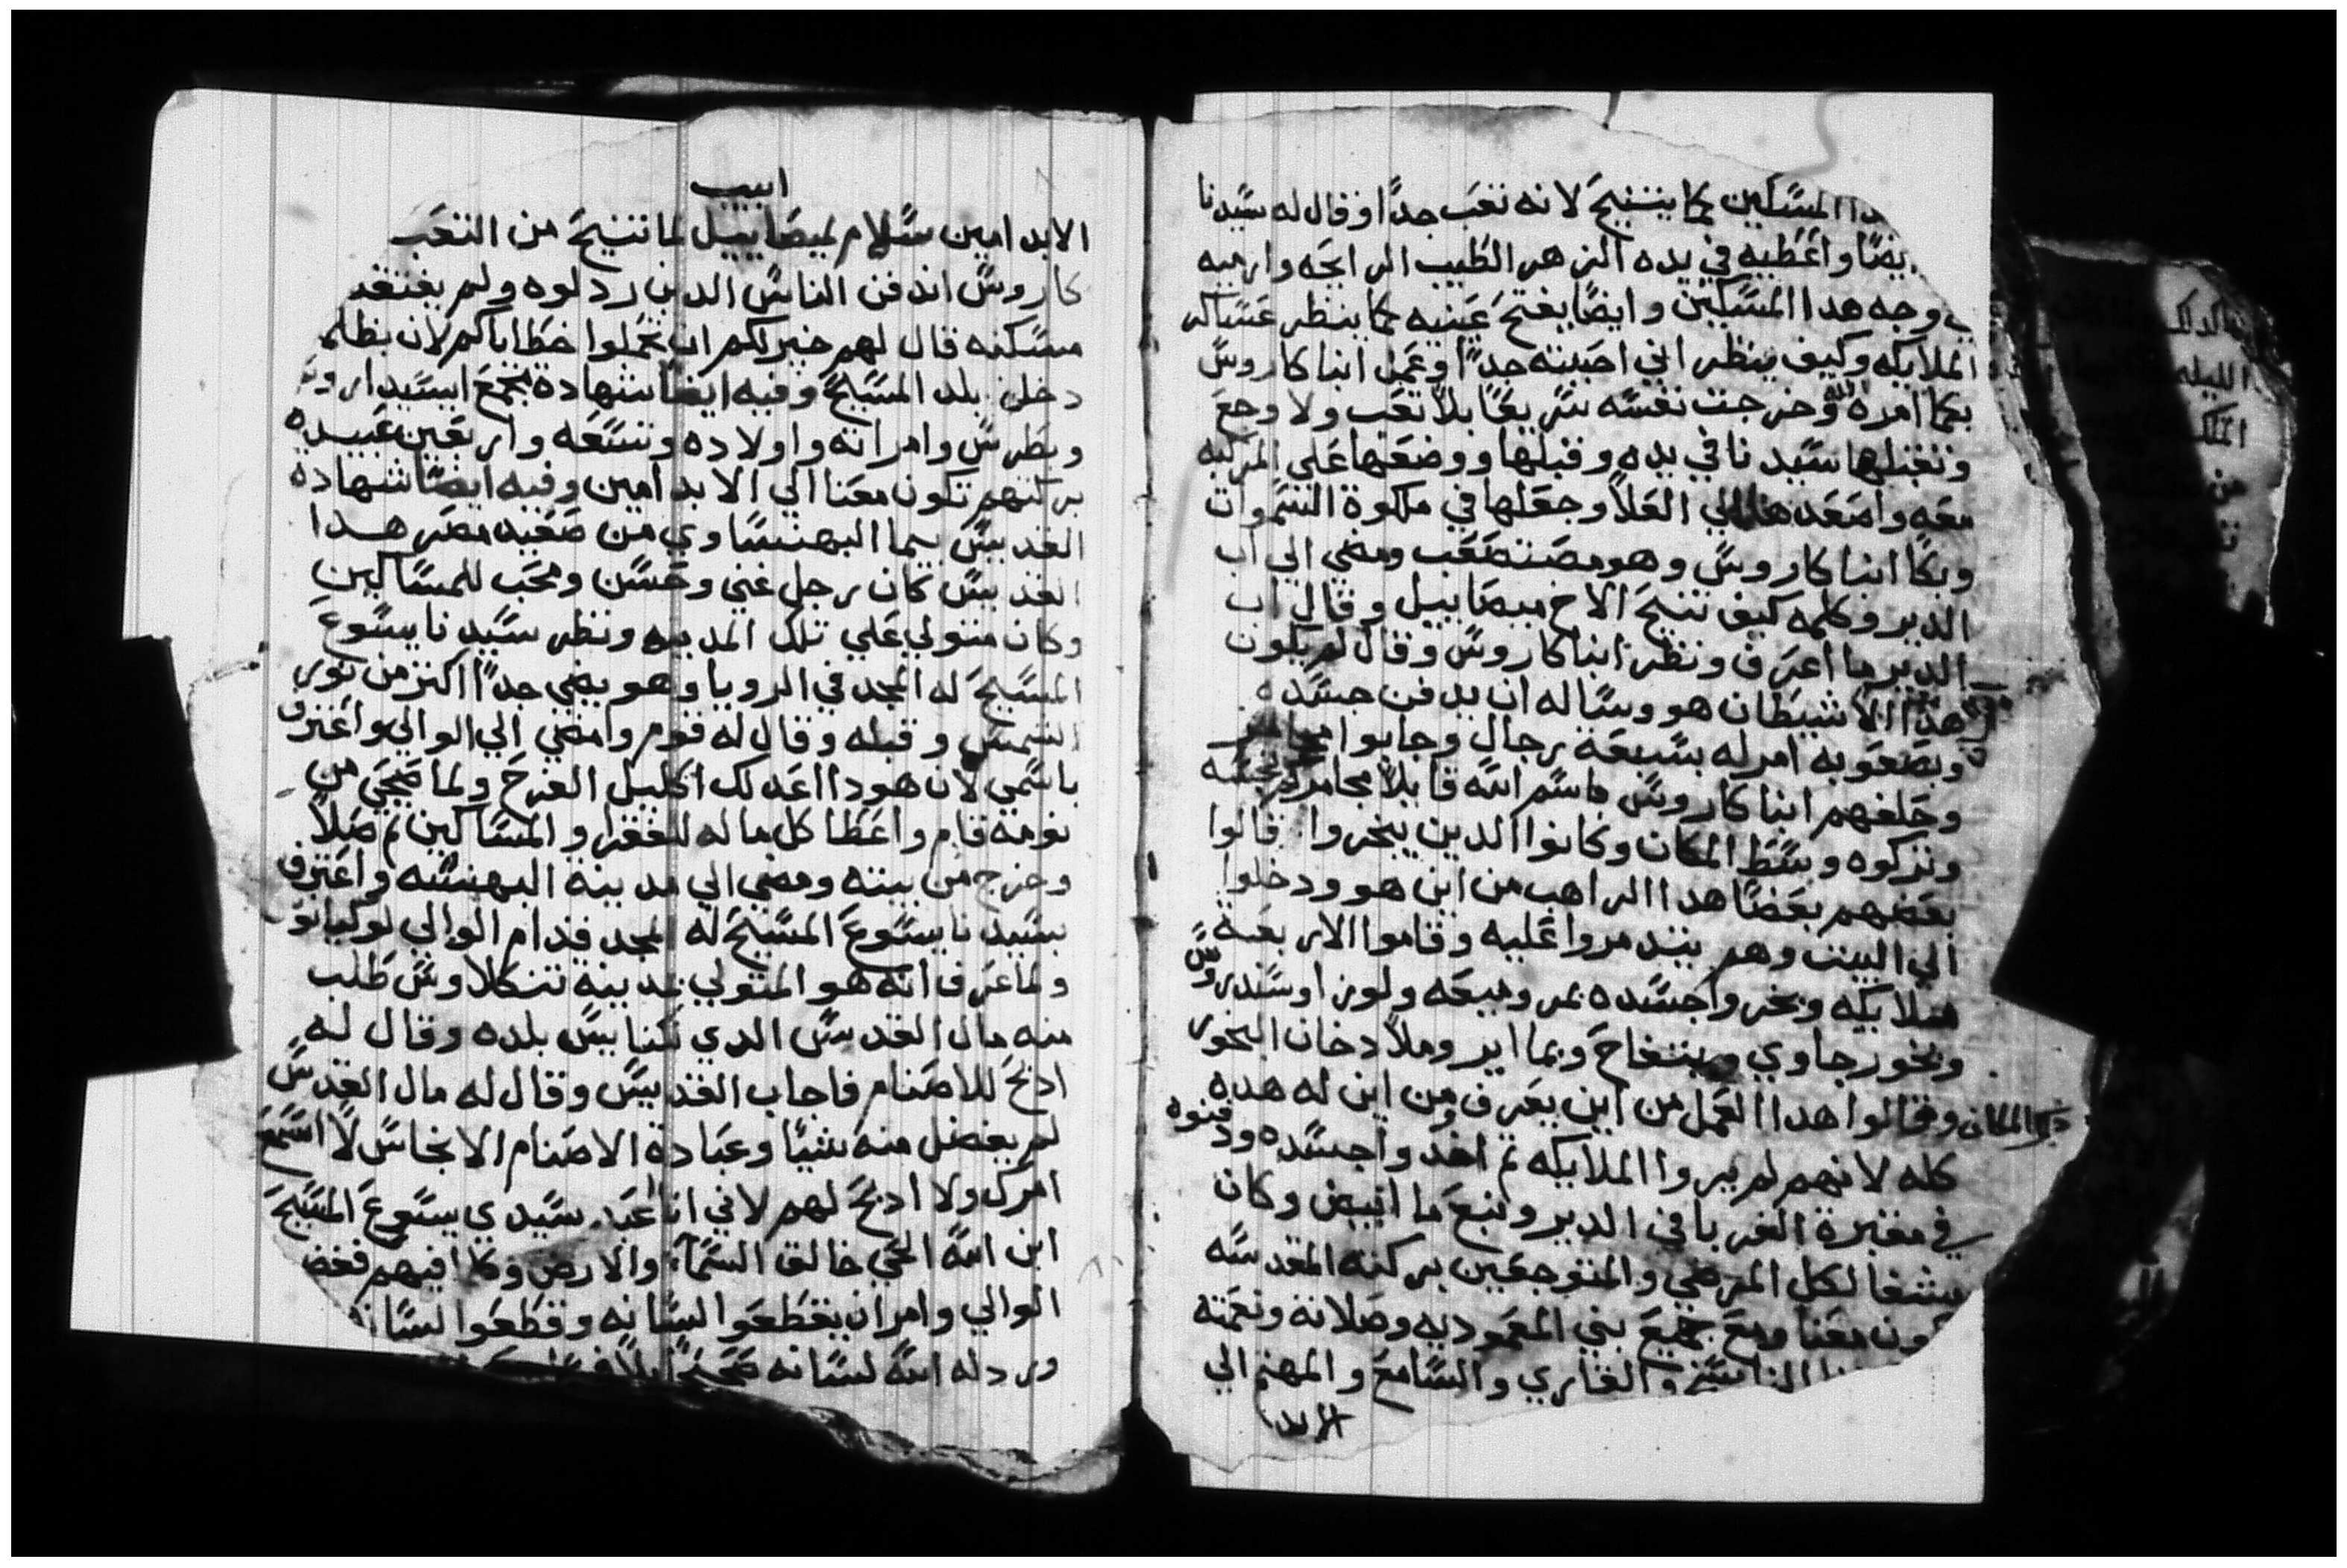 المسَّاكين كما يتنيحَ لانه تعَب جدًا وقال له سَّيدنا
ايضًا واعَطيه في يده الزهر الطَيب الرايحَه وارميه
وجه هدا المسَّكين وايضًا يفتحَ عَينيه كما ينظر عَسَّاكر
الملايكه وكيف ينظر اني احَببته جدًا وعَمل ابنا كاروسَّ
بعَكما امره الله وخرجت نفسَّه سَّريعًا بلا تعَب ولا وجعَ
وتقبلها سَّيدنا في يده وقبلها ووضعَها عَلي المركبه
معَه واصَعَدها الي العَلا وجعَلها في ملكوة السَّموات
وبكا ابنا كاروسَّ وهو مصَتصَعَب ومضي الي اب
الدير وكلمه كيف تنيحَ الاخ ميصَاييل وقال اب
الدير ما اعَرف ونظر ابنا كاروسَّ وقال لم يكون
هدا الا شيطَان هو وسَّاله ان يدفن جسَّده
وبصَعَوبه امر له بسَّبعَة رجال وجابوا مجامر
وحَلفهم ابنا كاروسَّ باسَّم اللَّه قايلا مجامركم نجسَّه
وتركوه وسَّطَ المكان وكانوا الدين يبخروا قالوا
بعَضهم بعَضًا هدا الراهب من اين هو ودخلوا
الي البيت وهم يتدمروا عَليه وقاموا الاربعَة
ملايكه وبخروا جسَّده بمر وميعَه ولوز اوسَّندروسَّ
وبخور جاوي وبتفاحَ وبما اير وملا دخان البخور
دلك المكان وقالوا هدا العَمل من اين يعَرف ومن اين له هده
كله لانهم لم يروا الملايكه تم اخدوا جسَّده ودفنوه
في مقبرة الغربا في الدير ونبعَ ما ابيض وكان
يشفا لكل المرضي والمتوجعَين بركته المقدسَّه
تكون معَنا ومعَ جميعَ بني المعَموديه وصَلاته ونعَمته
الناسَّخ والقاري والسَّامعَ والمهتم الي
الابد
ابيب
الابد امين سَّلام لميصَاييل لما تنيحَ من التعَب
كاروسَّ اندفن الناسَّ الدين ردلوه ولم يفتقد
مسَّكنه قال لهم خير لكم ان تحَملوا خطَاياكم لان بظلم
دخلن بلد المسَّيحَ وفيه ايضًا شهادة تجمعَ ابسَّيد
وبطَرسَّ وامراته واولاده وتسَّعَه واربعَين عَبيده
بركتهم تكون معَنا الي الابد امين وفيه ايضًا شهادة
القديسَّ بيما البهنسَّاوي من صَعَيد مصَر هدا
القديسَّ كان رجل غني وحَسَّن ومحَب للمسَّاكين
وكان متولي عَلي تلك المدينه ونظر سَّيدنا يسَّوعَ
المسَّيحَ له المجد في الرويا وهو يضي جدًا اكتر من نور
الشمسَّ وقبله وقال له قوم وامضي الي الوالي واعَترف
باسَّمي لان هودا اعَد لك اكليل الفرحَ ولما صَحَي من
نومه قام واعَطَا كل ماله للفقرا والمسَّاكين تم صَلا
وخرج من بيته ومضي الي مدينة البهنسَّه واعَترف
بسَّيدنا يسَّوعَ المسَّيحَ له المجد قدام الوالي لوكيانو
ولما عَرف انه هو المتولي بمدينة تنكلاوسَّ طَلب
منه مال القدسَّ الدي لكنايسَّ بلده وقال له
ادبحَ للاصَنام فاجاب القديسَّ وقال له مال القدسَّ
لم يفضل منه شيًا وعَبادة الاصَنام الانجاسَّ لا اسَّمعَ
امرك ولا ادبحَ لهم لاني انا اعَبد سَّيدي يسَّوعَ المسَّيحَ
ابن اللَّه الحَي خالق السَّمآء والارض وما فيهم فغضب
الوالي وامر ان يقطَعَوا لسَّانه وقطَعَوا لسَّانه
ورد له اللَّه لسَّانه صَحَيحًا بلا